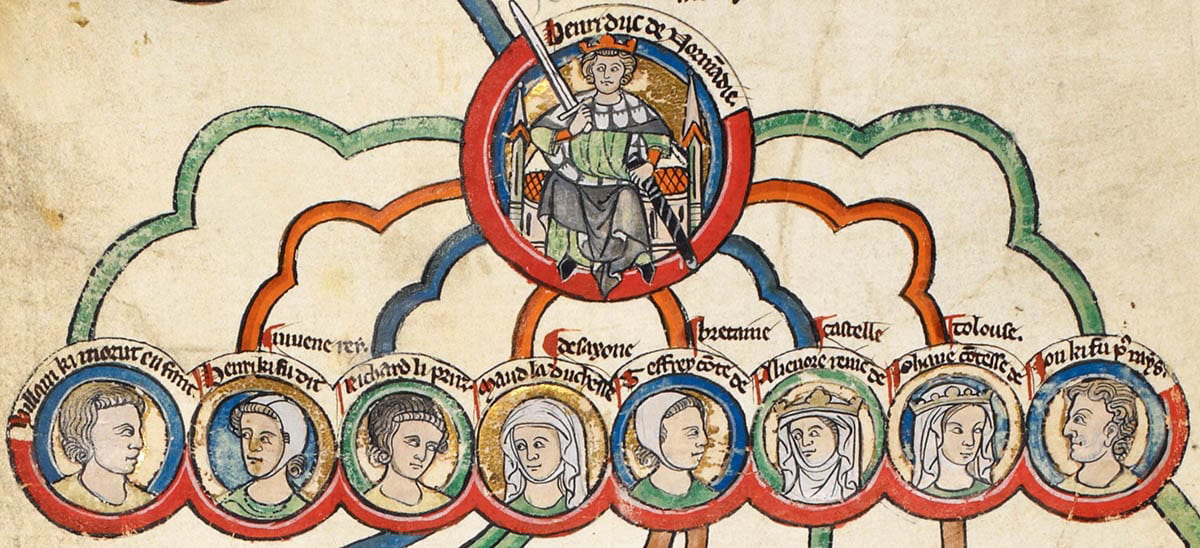 Henri duc de Normãdie.
Willam ki morut en
Henri ki fu dit
iuvene rey.
Richard li
Maud la duchesse
de saxone
Geffrey cõte de
bretaine
Alienore reine de
castelle
Iohane cõtesse de
tolouse.
Ion ki fu